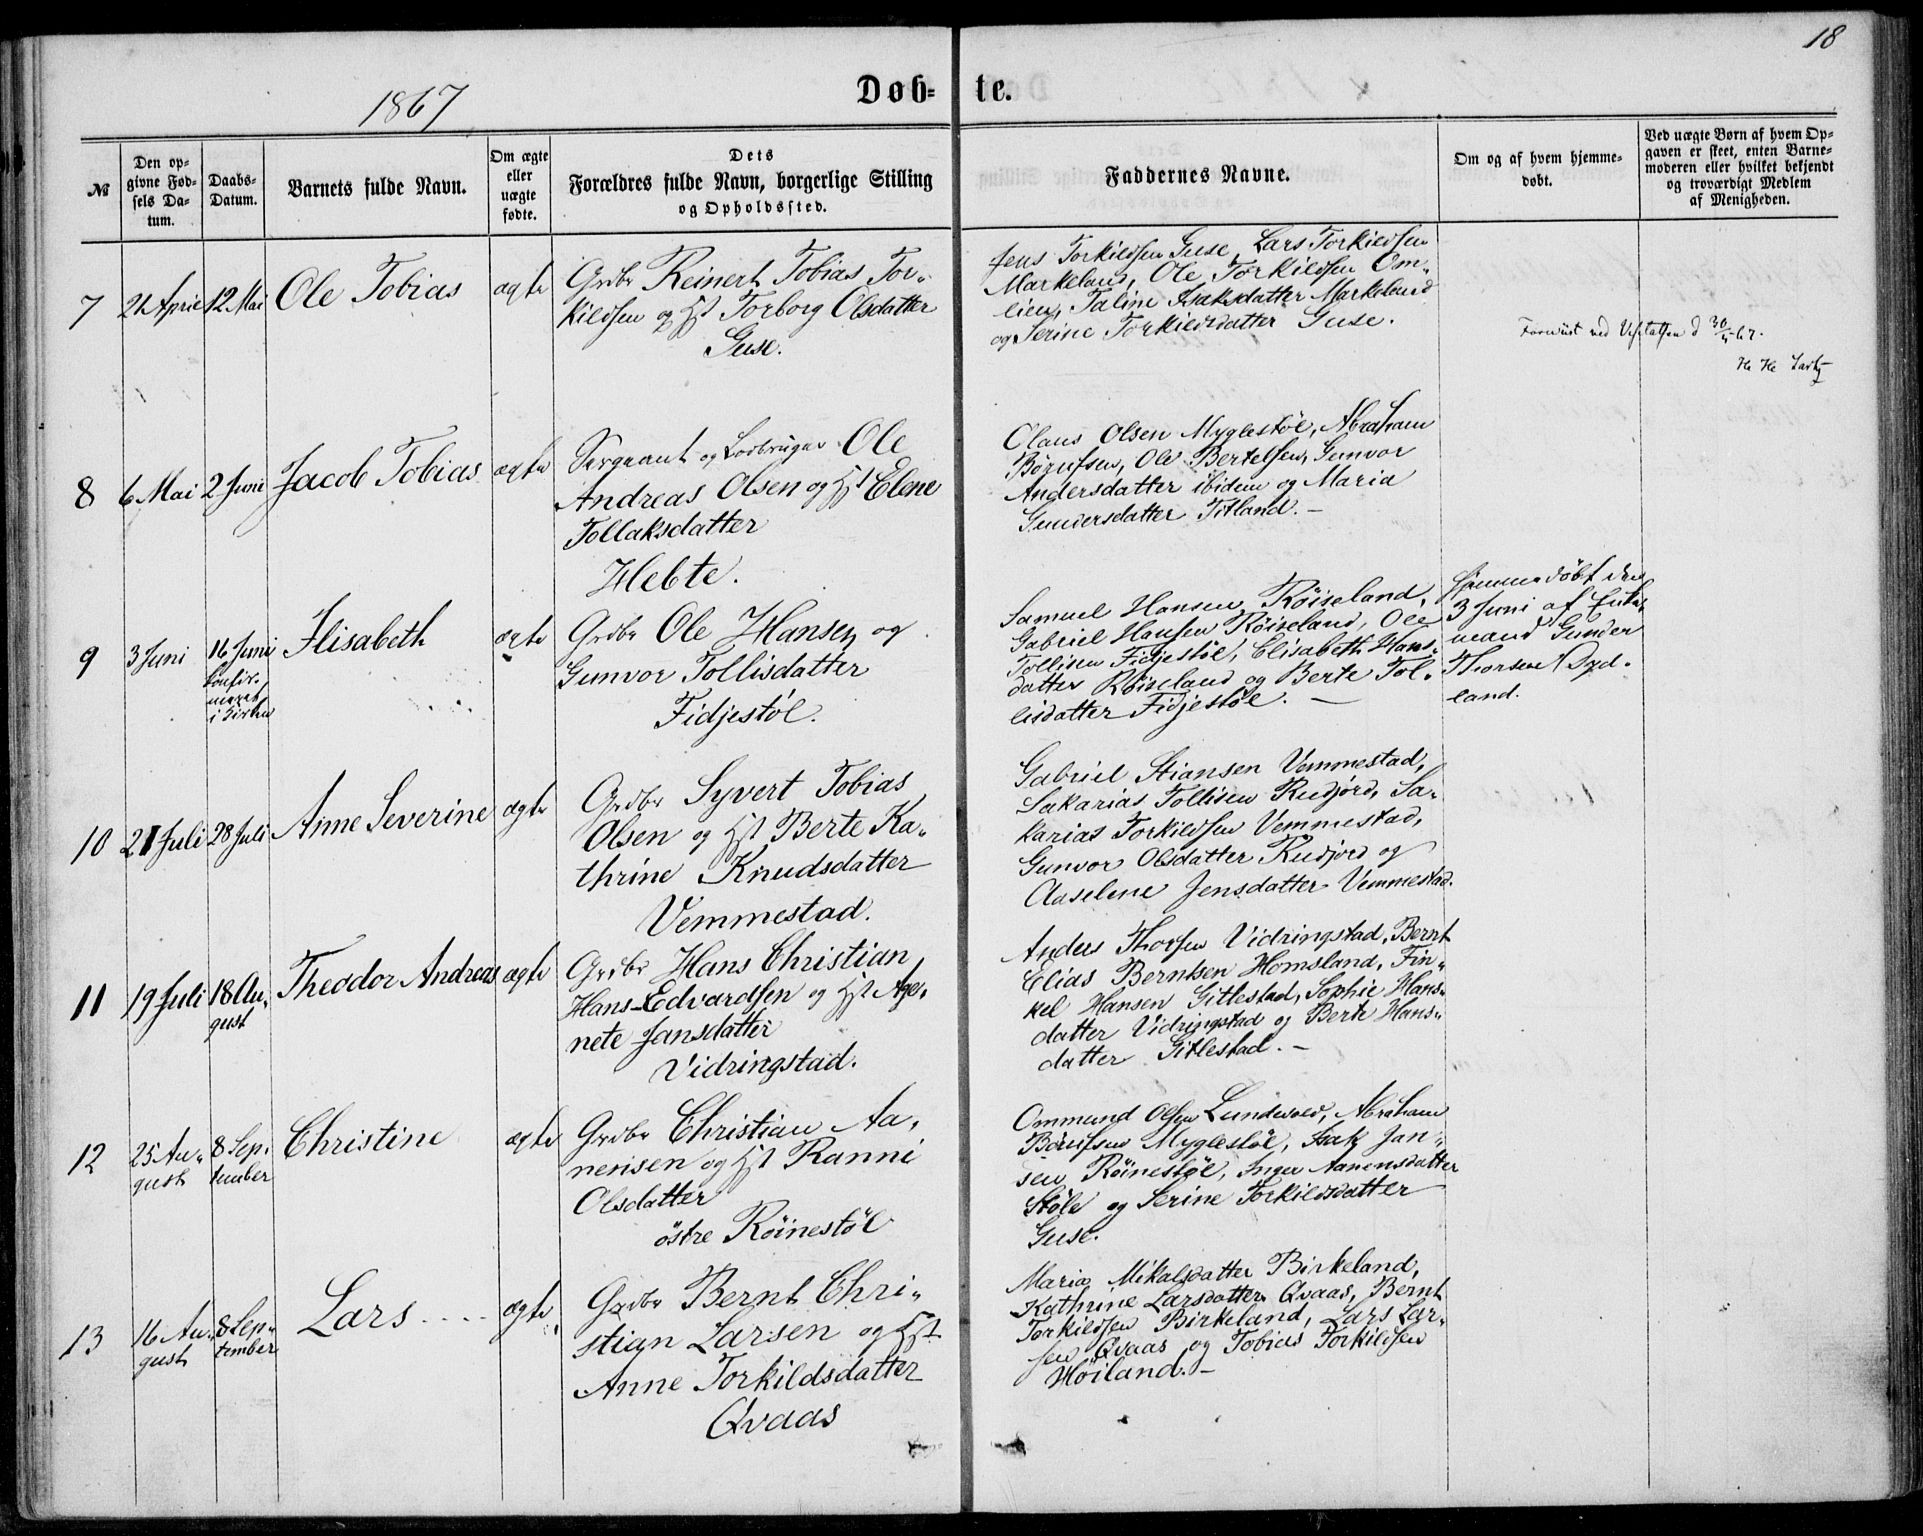 18
1867
Døb- te.
№
Den op-
givne Fød-
sels Da-
tum.
Daabs-
Datum.
Barnets fulde Navn.
Om ægte
eller
uægte
fødte.
Dets
Forældres fulde Navn, borgerlige Stilling
og Opholdssted.
Faddernes Navne.
Om og af hvem hjemme-
døbt.
Ved uægte Børn af hvem Op-
gaven er skeet, enten Barne-
moderen eller hvilket bekjendt
og troværdigt Medlem
af Menigheden.
7
21 April
12 Mai
Ole Tobias
ægte
Grdbr Reinert Tobias Tor-
kildsen og Hst Torborg Olsdatter
Guse.
Jens Torkildsen Guse, Lars Torkildsen
Markeland, Ole Torkildsen Om-
lien, Taline Isaksdatter Markeland
og Serine Torkildsdatter Guse.
ved d 30/5 67.
8
6 Mai
2 Juni
Jacob Tobias
ægte
Sergeant og Lodbruger Ole
Andreas Olsen og Hst Elene
Tollaksdatter
Hebte.
Olaus Olsen Myglestøl, Abraham
Børufsen, Ole Bertelsen, Gunvor
Andersdatter ibidem og Maria
Gundersdatter Titland. -
9
3 Juni
16 Juni
confir-
meret
i Kirken
Elisabeth
ægte
Grdbr Ole Hansen og
Gunvor Tollisdatter
Fidjestøl.
Samuel Hansen Røiseland,
Gabriel Hansen Røiseland, Ole
Tollisen Fidjestøl, Elisabeth Hans-
datter Røiseland og Berte Tol-
lisdatter Fidjestøl. -
hjemmedøbt den
3 Juni af Enke-
mand Gunder
Thorsen Dyd-
land.
10
21 Juli
28 Juli
Anne Severine
ægte
Grdbr Syvert Tobias
Olsen og Hst Berte Ka-
thrine Knudsdatter
Vemmestad.
Gabriel Stiansen Vemmestad,
Sakarias Tollisen Rudjord, Sa-
karias Torkildsen Vemmestad,
Gunvor Olsdatter Rudjord og
Aaselene Jensdatter Vemmestad.
11
19 Juli
18 Au-
gust
Theodor Andreas
ægte
Grdbr Hans Christian
Hans-Edvardsen og Hst Age-
nete Jansdatter
Vidringstad.
Anders Thorsen Vidringstad, Bernt
Elias Berntsen Homsland, Fin-
kel Hansen Gitlestad, Sophie Hans-
datter Vidringstad og Berte Hans-
datter Gitlestad. -
12
25 Au-
gust
8 Sep-
tember
Christine
ægte
Grdbr Christian Aa-
nensen og Hst Ranni
Olsdatter
østre Røinestøl
Ommund Olsen Lundevold, Abraham
Børufsen Myglestøl, Isak Jan-
sen Røinestøl, Inger Aanensdatter
Støle og Serine Torkildsdatter
Guse.
13
16 Au-
gust
8 Sep-
tember
Lars
ægte
Grdbr Bernt Chri-
stian Larsen og Hst
Anne Torkildsdatter
Qvaas
Maria Mikalsdatter Birkeland,
Kathrine Larsdatter Qvaas, Bernt
Torkildsen Birkeland, Lars Lar-
sen Qvaas og Tobias Torkildsen
Høiland. -